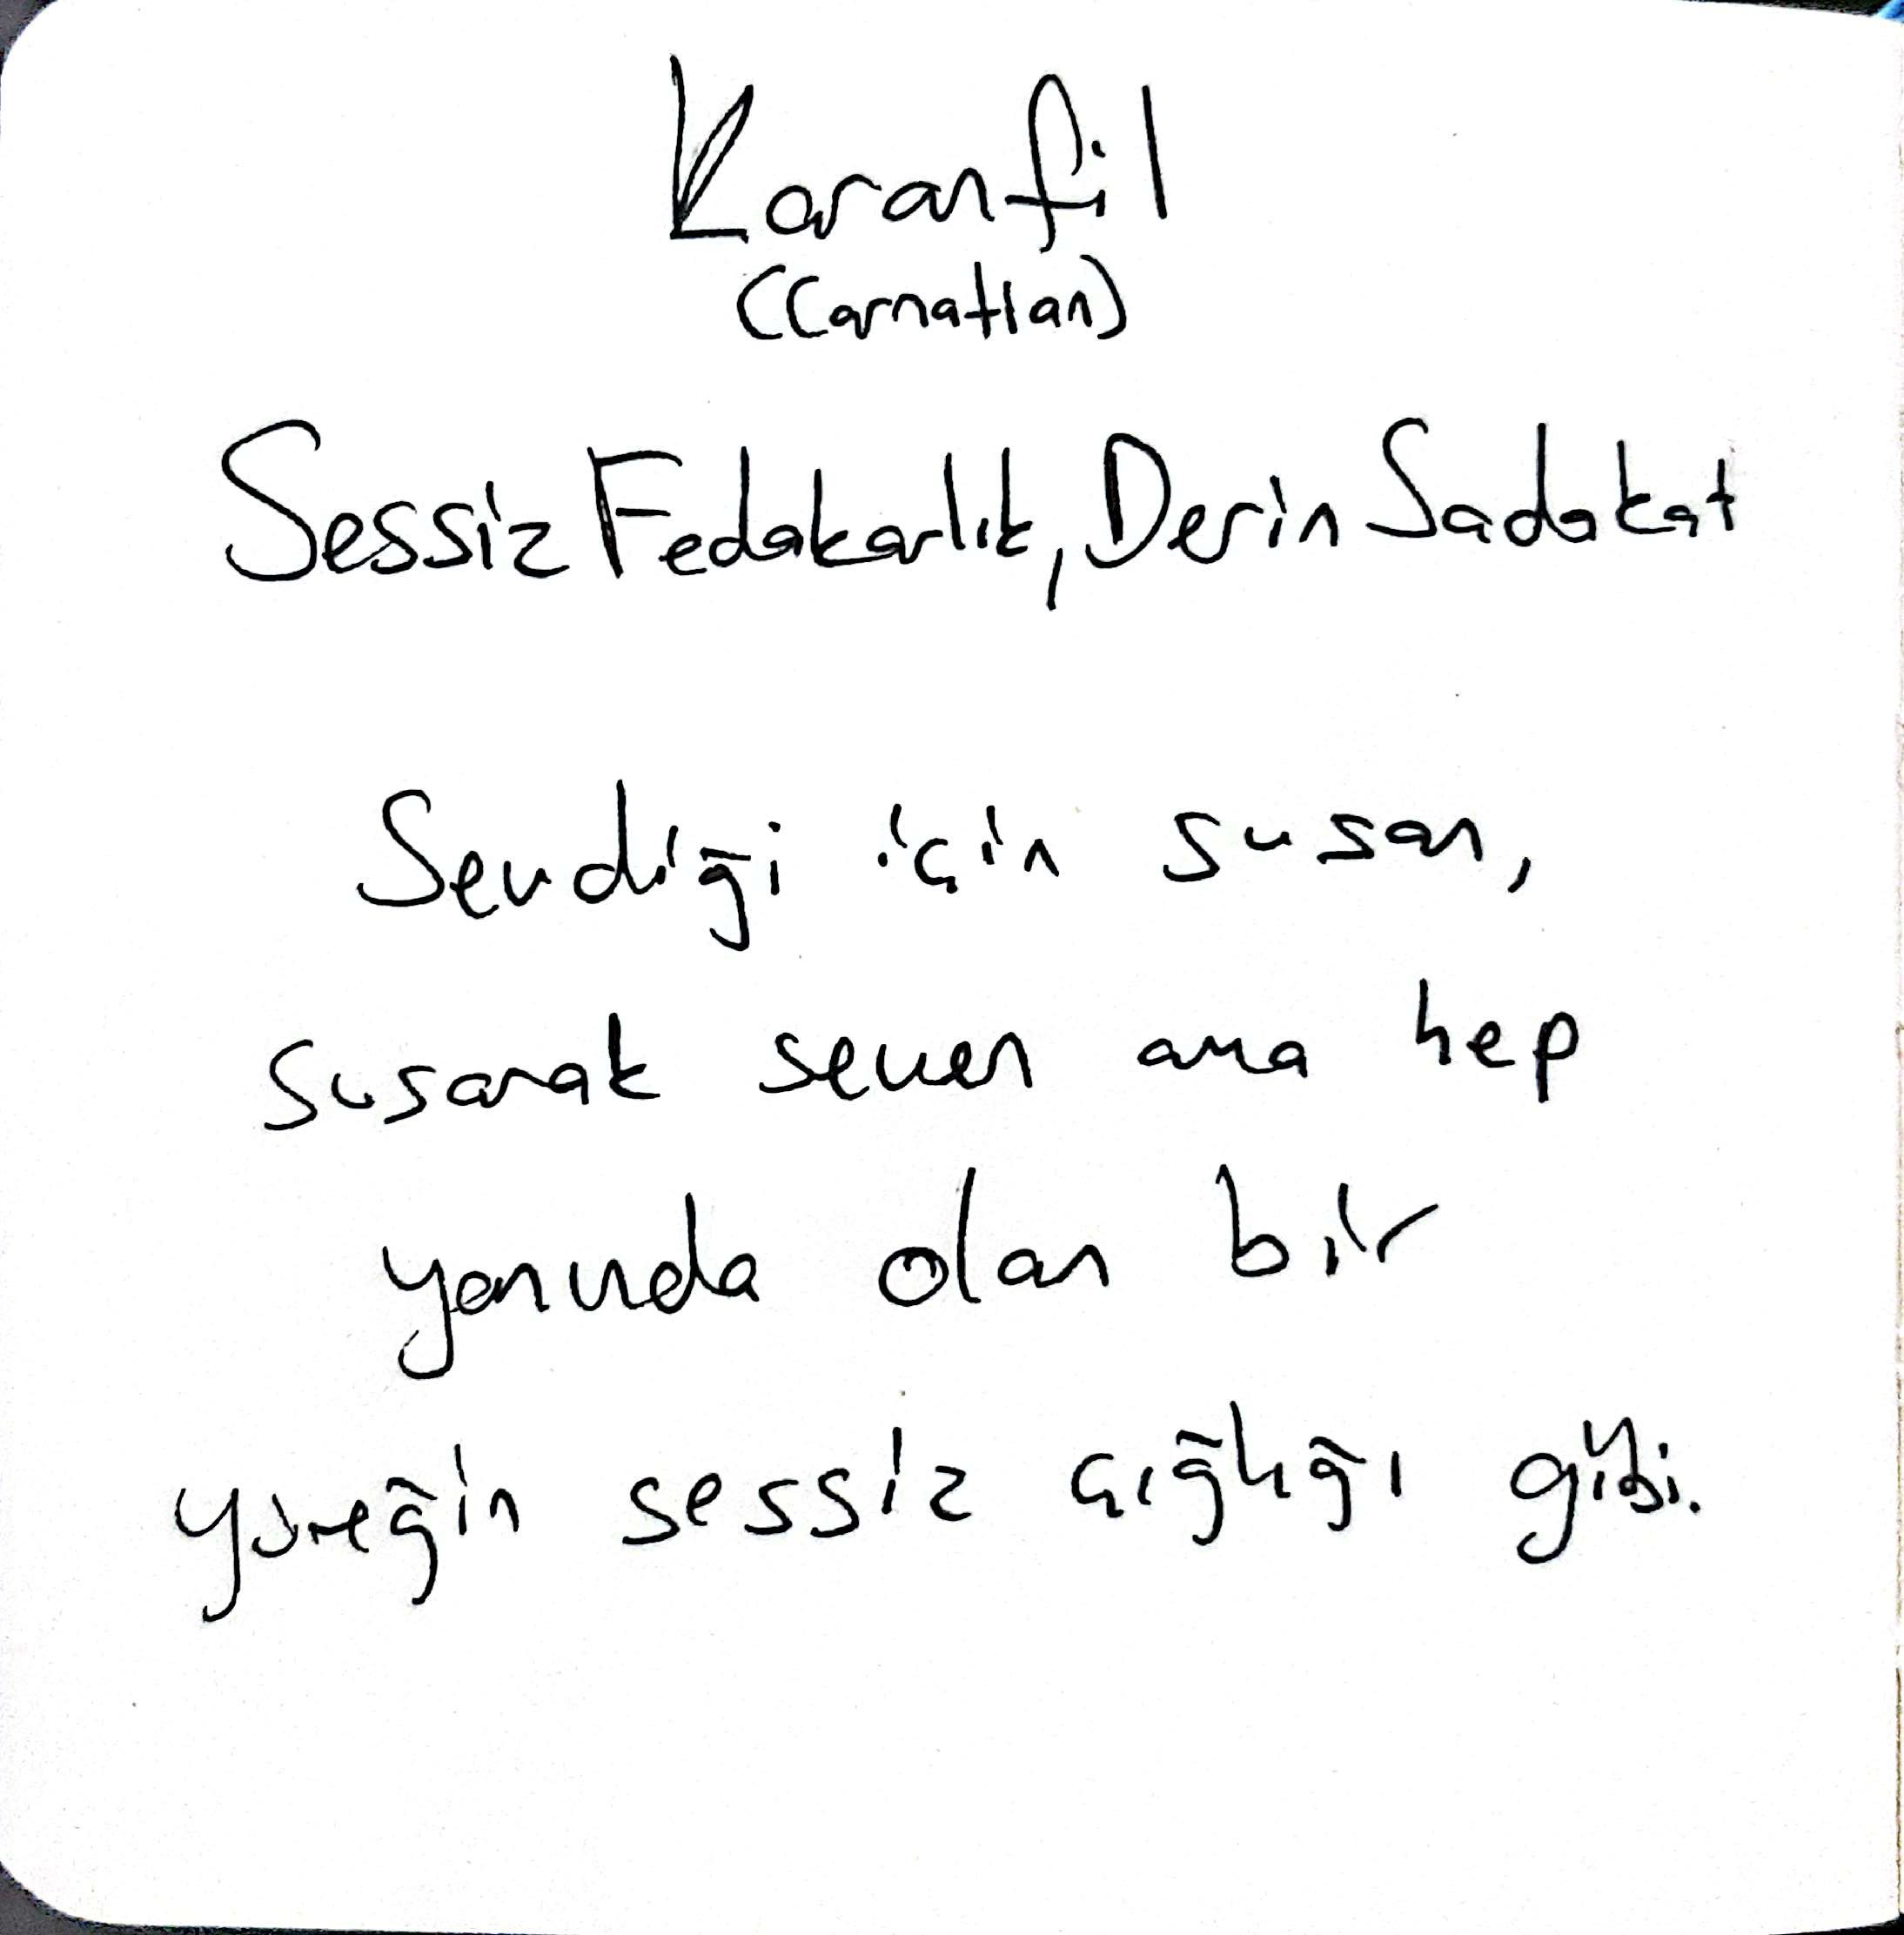 Karanfil
(Carnatıan)
Sessiz Fedakarlık, Derin Sadakat
Sevdiği için susan,
susarak seven ama hep
yanında olan bir
yüreğin sessiz çığlığı gibi.